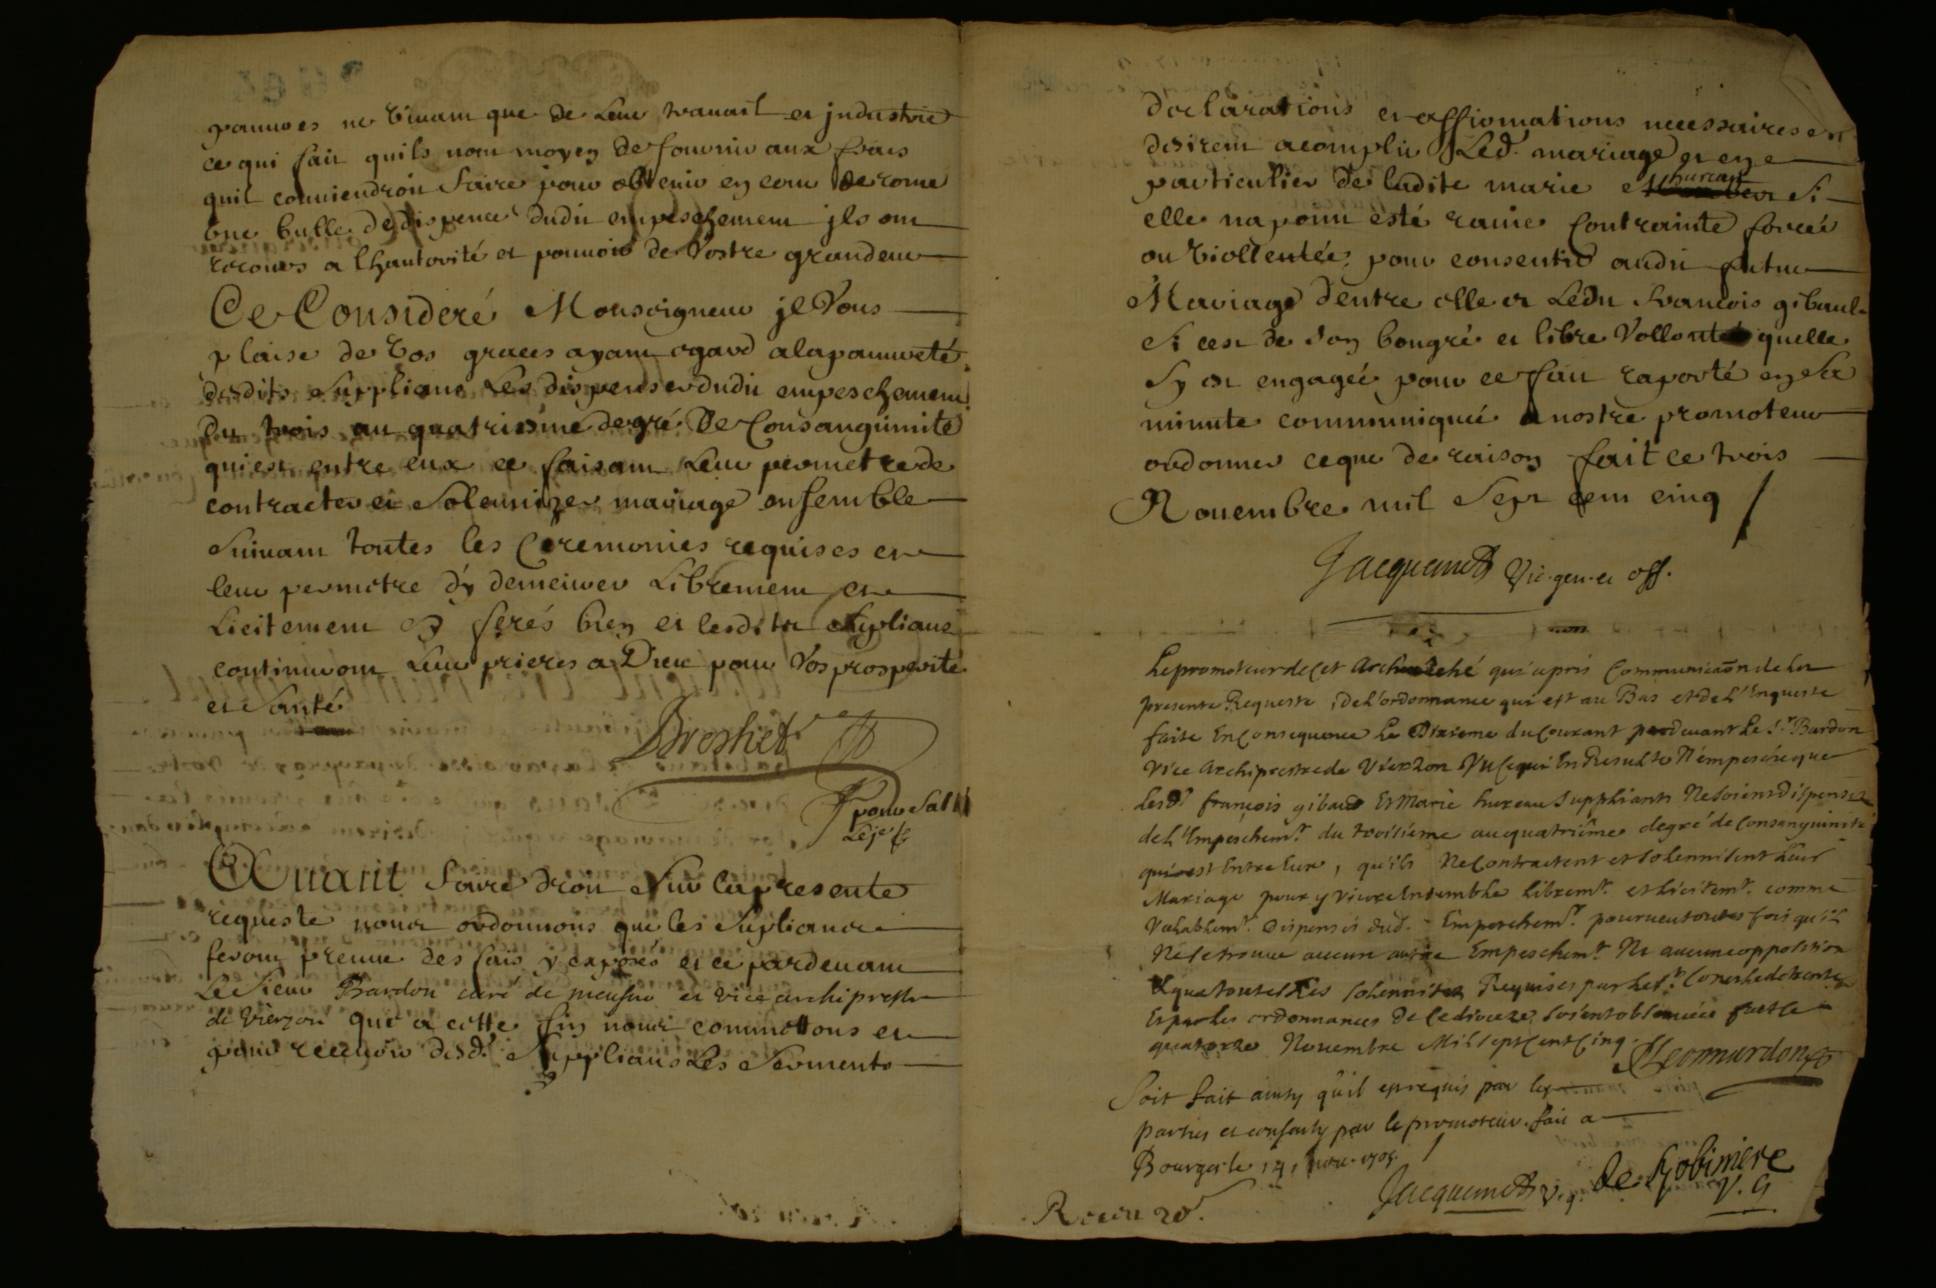 pauures ne viuant que de Leur trauail et jndustrie
ce qui fait quils nont moyen de fournir aux frais
quil conuiendroit faire pour obtenir en cour de rome
vne bulle de dispence dudit empeschement jls ont
recours a lhautorité et pouuoir de Vostre grandeur
Ce Consideré Monseigneur jl Vous
plaise de vos graces ayant egard a la pauureté
desdits Suppliants Les dispenser dudit empeschement
du trois au quatriesme degré De Consanguinité
qui est entre eux ce faisant Leur permetre de
contracter et Solemnizer mariage ensemble
Suiuant toutes les Ceremonies requises et
leur permetre dy demeurer Librement et
Licitement Et ferés bien et lesdits Supliants
continuront Leur prieres a Dieu pour Vos prosperité
et Santé
Brochet
pour Sal
Auant faire droit Sur la presente
requeste nous ordonnons que les Supliants
feront preuue des faits y exposés et ce pardeuant
Le Sieur Bardon curé de meusne et vice archiprestre
de vierzon que a cette fin nous commettons et
pour receuoir desd. Suppliants Les Serments
declarations et affirmations necessaires et
desirent acomplir Led. mariage et en
particulier de ladite marie hureau Si
elle na point esté rauie Contrainte forcée
ou viollentée pour consentir audit futur
Mariage d'entre elle et Ledit francois gibault
Si cest de son bongré et libre Vollonté quelle
Sy est engagée pour ce fait raporté en Sa
minute communiquée a nostre promoteur
ordonner ce que de raison fait ce trois
Nouembre mil Sept cent cinq
Jacquemet Vic. gen. et off.
Le promoteur de Cet Archeueché qui apris Communicaōn de La
presente Requeste, de L'ordonnance qui est au Bas et de L'Enqueste
faite En Consequence Le Dixieme du Courant pardeuant Le Sr. Bardon
Vice Archiprestre de Vierzon Vu Ce qui En Resulte N'empesche que
Lesd. françois gibaud Et Marie hureau Suppliants Ne Soient dispensez
de L'Empeschemt. du troisiéme au quatriéme degré de Consanguinité
qui est Entre Eux, qu'ils Ne Contractent et Solennisent Leur
Mariage pour y Viure Ensemble Libremt. et Licitemt. comme
Valablemt. Dispensés dud. Empeschemt. pourueu toutes fois qu'il
Ne Se trouue aucun autre Empeschemt. Ni aucune oppossition
Et que toutes Les Solennitez Requises par Le St. Concile de trente
Et par Les ordonnances de Ce dioceze Soient obseruées fait Ce
quatorze Nouembre Mil Sept Cent Cinq.
Leonnardon
Soit fait ainsy qu'il est requis par les
parties et consenty par le promoteur. fait a
Bourges le 14 nou. 1705
Jacquemet V. g. de
V. G
Receu 20s.